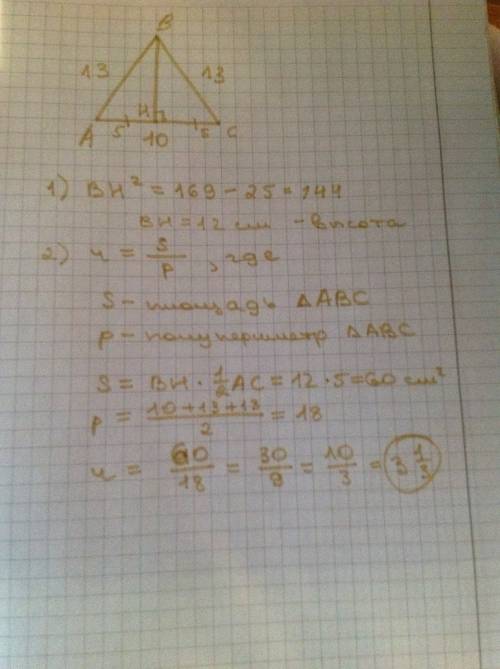 B
13 13
H
A 5 10 5 C
1) BH² = 169 - 25 = 144
BH = 12 см - высота
2) r = S/P , где
S - площадь △ABC
P - полупериметр △ABC
S = BH · 1/2 AC = 12 · 5 = 60 см²
P = 10+13+13/2 = 18
r = 60/18 = 30/9 = 10/3 = 3 1/3